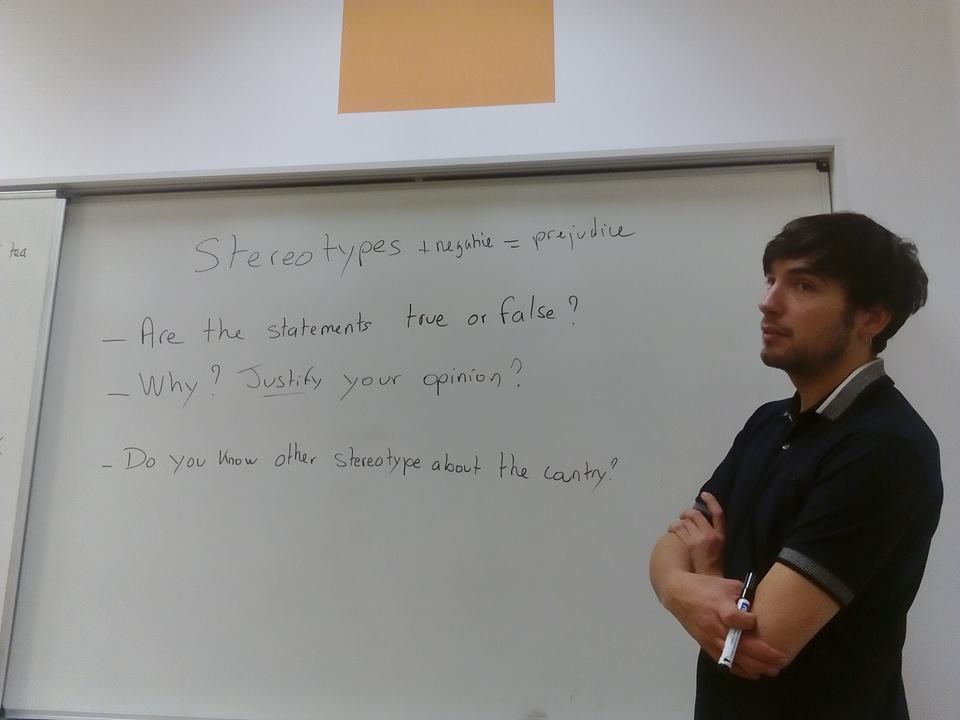 tea
Stereotypes + negative = prejudice
— Are the statements true or false?
— Why? Justify your opinion?
- Do you know other stereotype about the country?